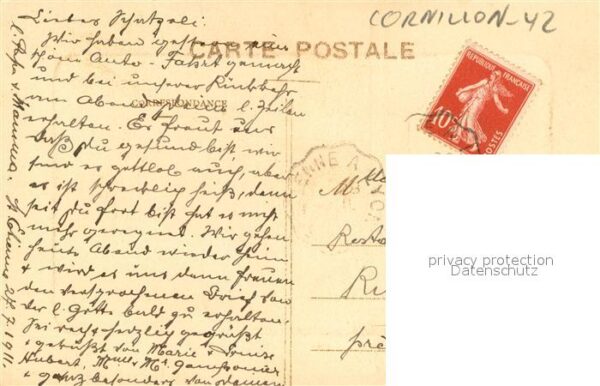 CORNILLON-42
CARTE POSTALE
CORRESPONDANCE
REPUBLIQUE FRANÇAISE
10c
POSTES
Liebes Schatzeli:
Wir haben gestern eine
schöne Auto-Fahrt gemacht
und bei unserer Rückkehr
am Abend l. Zeilen
erhalten. Es freut uns
daß du gesund bist, wir
sind es gottlob auch, aber
es ist schrecklich heiß, denn
seit du fort bist hat es nicht
mehr geregnet. Wir gehen
heute Abend wieder heim
+ wird es uns dann freuen
den versprochenen Brief von
der l. Götti bald zu erhalten.
Sei recht herzlich gegrüßt
+ geküßt von Marie + Louise
Hubert, Mlle + Mr
+ ganz besonders von deinem
l. Papa + Mamma.
St Etienne 24.7.1911.
ENNE A
Mlle
Resta
Ru
prè
privacy protection
Datenschutz